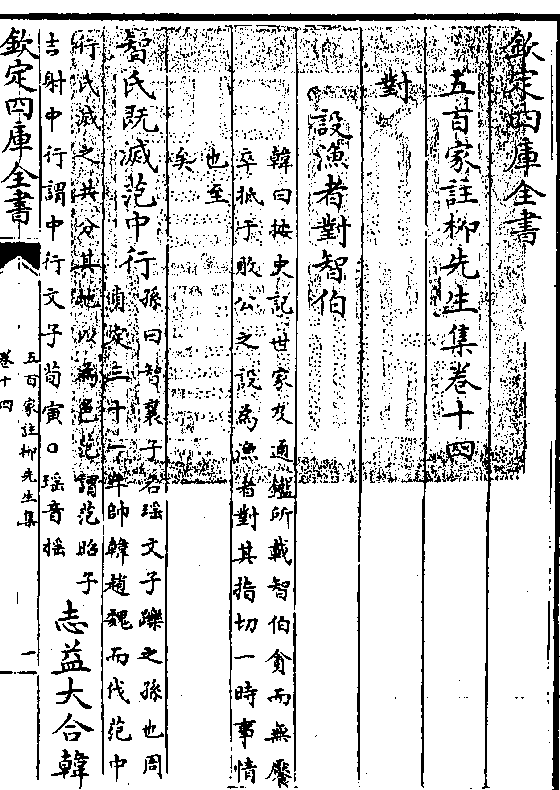 欽定四庫全書
五百家註柳先生集卷十四
對
設漁者對智伯
韓曰按史記世家及通鑑所載智伯貪而無饜
卒抵于敗公之設為漁者對其指切一時事情
也至
矣
智氏既滅范中行
孫曰智襄子名瑶文子躒之孫也周
貞定王十一年帥韓趙魏而伐范中
行氏滅之共分其地以為邑范謂范昭子
吉射中行謂中行文子荀寅○瑶音揺
志益大合韓
欽定四庫全書
五百家註柳先生集
卷十四
一